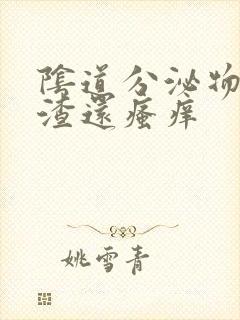 陰道分泌物
渣還瘙痒
姚雪青